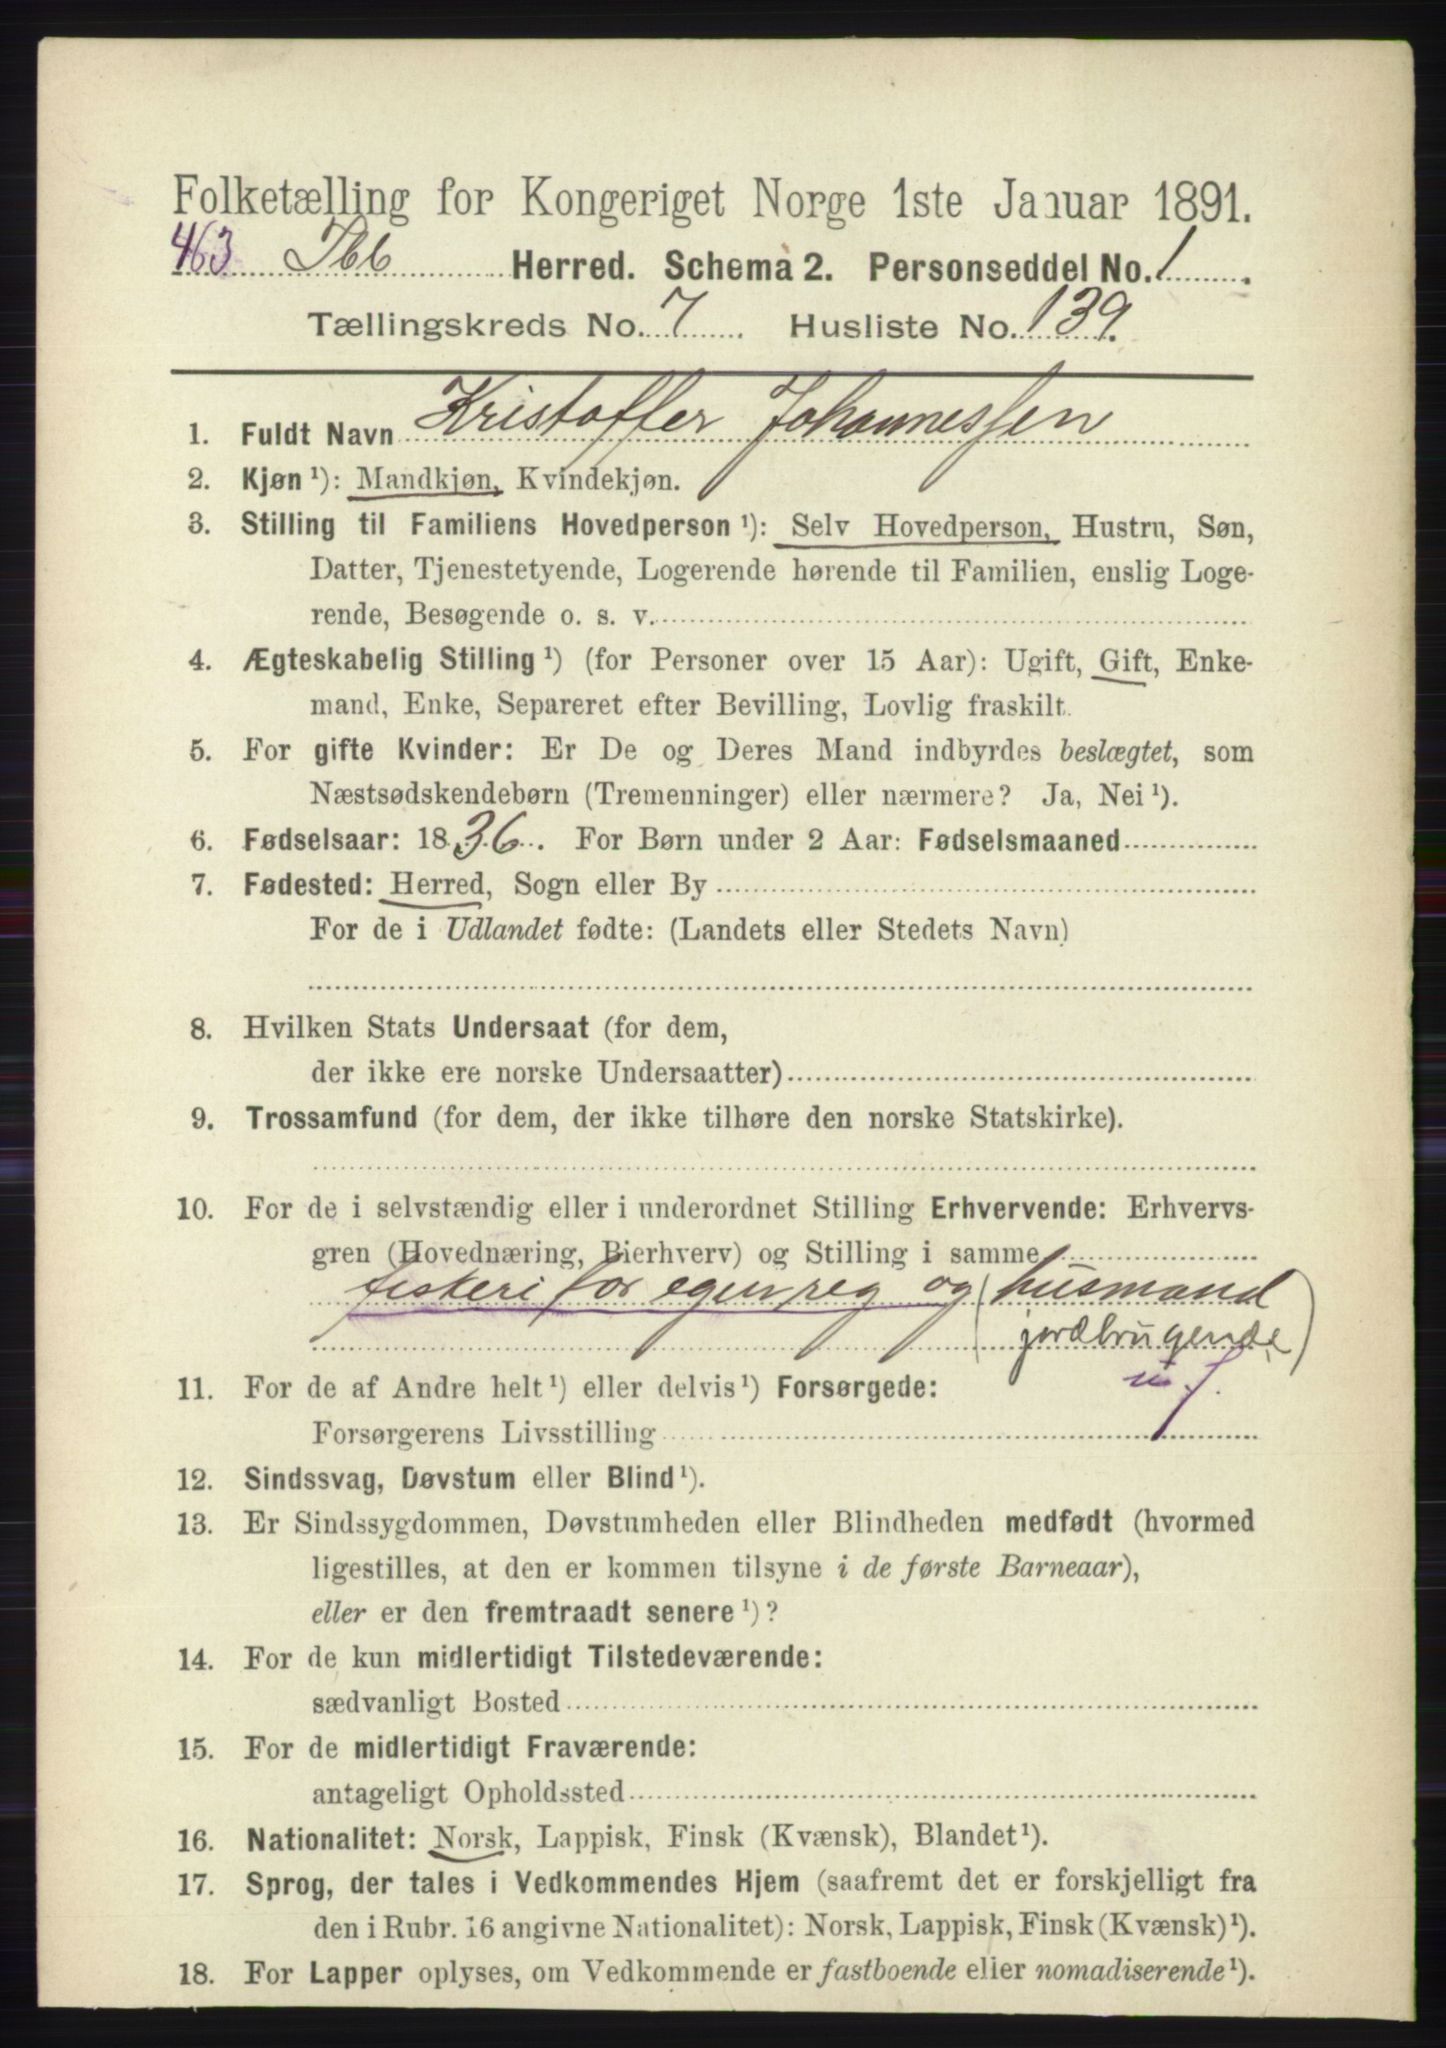 Folketælling for Kongeriget Norge 1ste Januar 1891.
463 Ibb Herred. Schema 2. Personseddel No. 1.
Tællingskreds No. 7. Husliste No. 139.
1. Fuldt Navn Kristoffer Johannessen
2. Kjøn ¹): Mandkjøn, Kvindekjøn.
3. Stilling til Familiens Hovedperson ¹): Selv Hovedperson, Hustru, Søn,
Datter, Tjenestetyende, Logerende hørende til Familien, enslig Loge-
rende, Besøgende o. s. v.
4. Ægteskabelig Stilling ¹) (for Personer over 15 Aar): Ugift, Gift, Enke-
mand, Enke, Separeret efter Bevilling, Lovlig fraskilt.
5. For gifte Kvinder: Er De og Deres Mand indbyrdes beslægtet, som
Næstsødskendebørn (Tremenninger) eller nærmere? Ja, Nei ¹).
6. Fødselsaar: 1836. For Børn under 2 Aar: Fødselsmaaned
7. Fødested: Herred, Sogn eller By
For de i Udlandet fødte: (Landets eller Stedets Navn)
8. Hvilken Stats Undersaat (for dem,
der ikke ere norske Undersaatter)
9. Trossamfund (for dem, der ikke tilhøre den norske Statskirke).
10. For de i selvstændig eller i underordnet Stilling Erhvervende: Erhvervs-
gren (Hovednæring, Bierhverv) og Stilling i samme
fiskeri for egen reg og (husmand
jordbrugende)
11. For de af Andre helt ¹) eller delvis ¹) Forsørgede:
Forsørgerens Livsstilling
12. Sindssvag, Døvstum eller Blind ¹).
13. Er Sindssygdommen, Døvstumheden eller Blindheden medfødt (hvormed
ligestilles, at den er kommen tilsyne i de første Barneaar),
eller er den fremtraadt senere ¹)?
14. For de kun midlertidigt Tilstedeværende:
sædvanligt Bosted
15. For de midlertidigt Fraværende:
antageligt Opholdssted
16. Nationalitet: Norsk, Lappisk, Finsk (Kvænsk), Blandet ¹).
17. Sprog, der tales i Vedkommendes Hjem (saafremt det er forskjelligt fra
den i Rubr. 16 angivne Nationalitet): Norsk, Lappisk, Finsk (Kvænsk) ¹).
18. For Lapper oplyses, om Vedkommende er fastboende eller nomadiserende ¹).